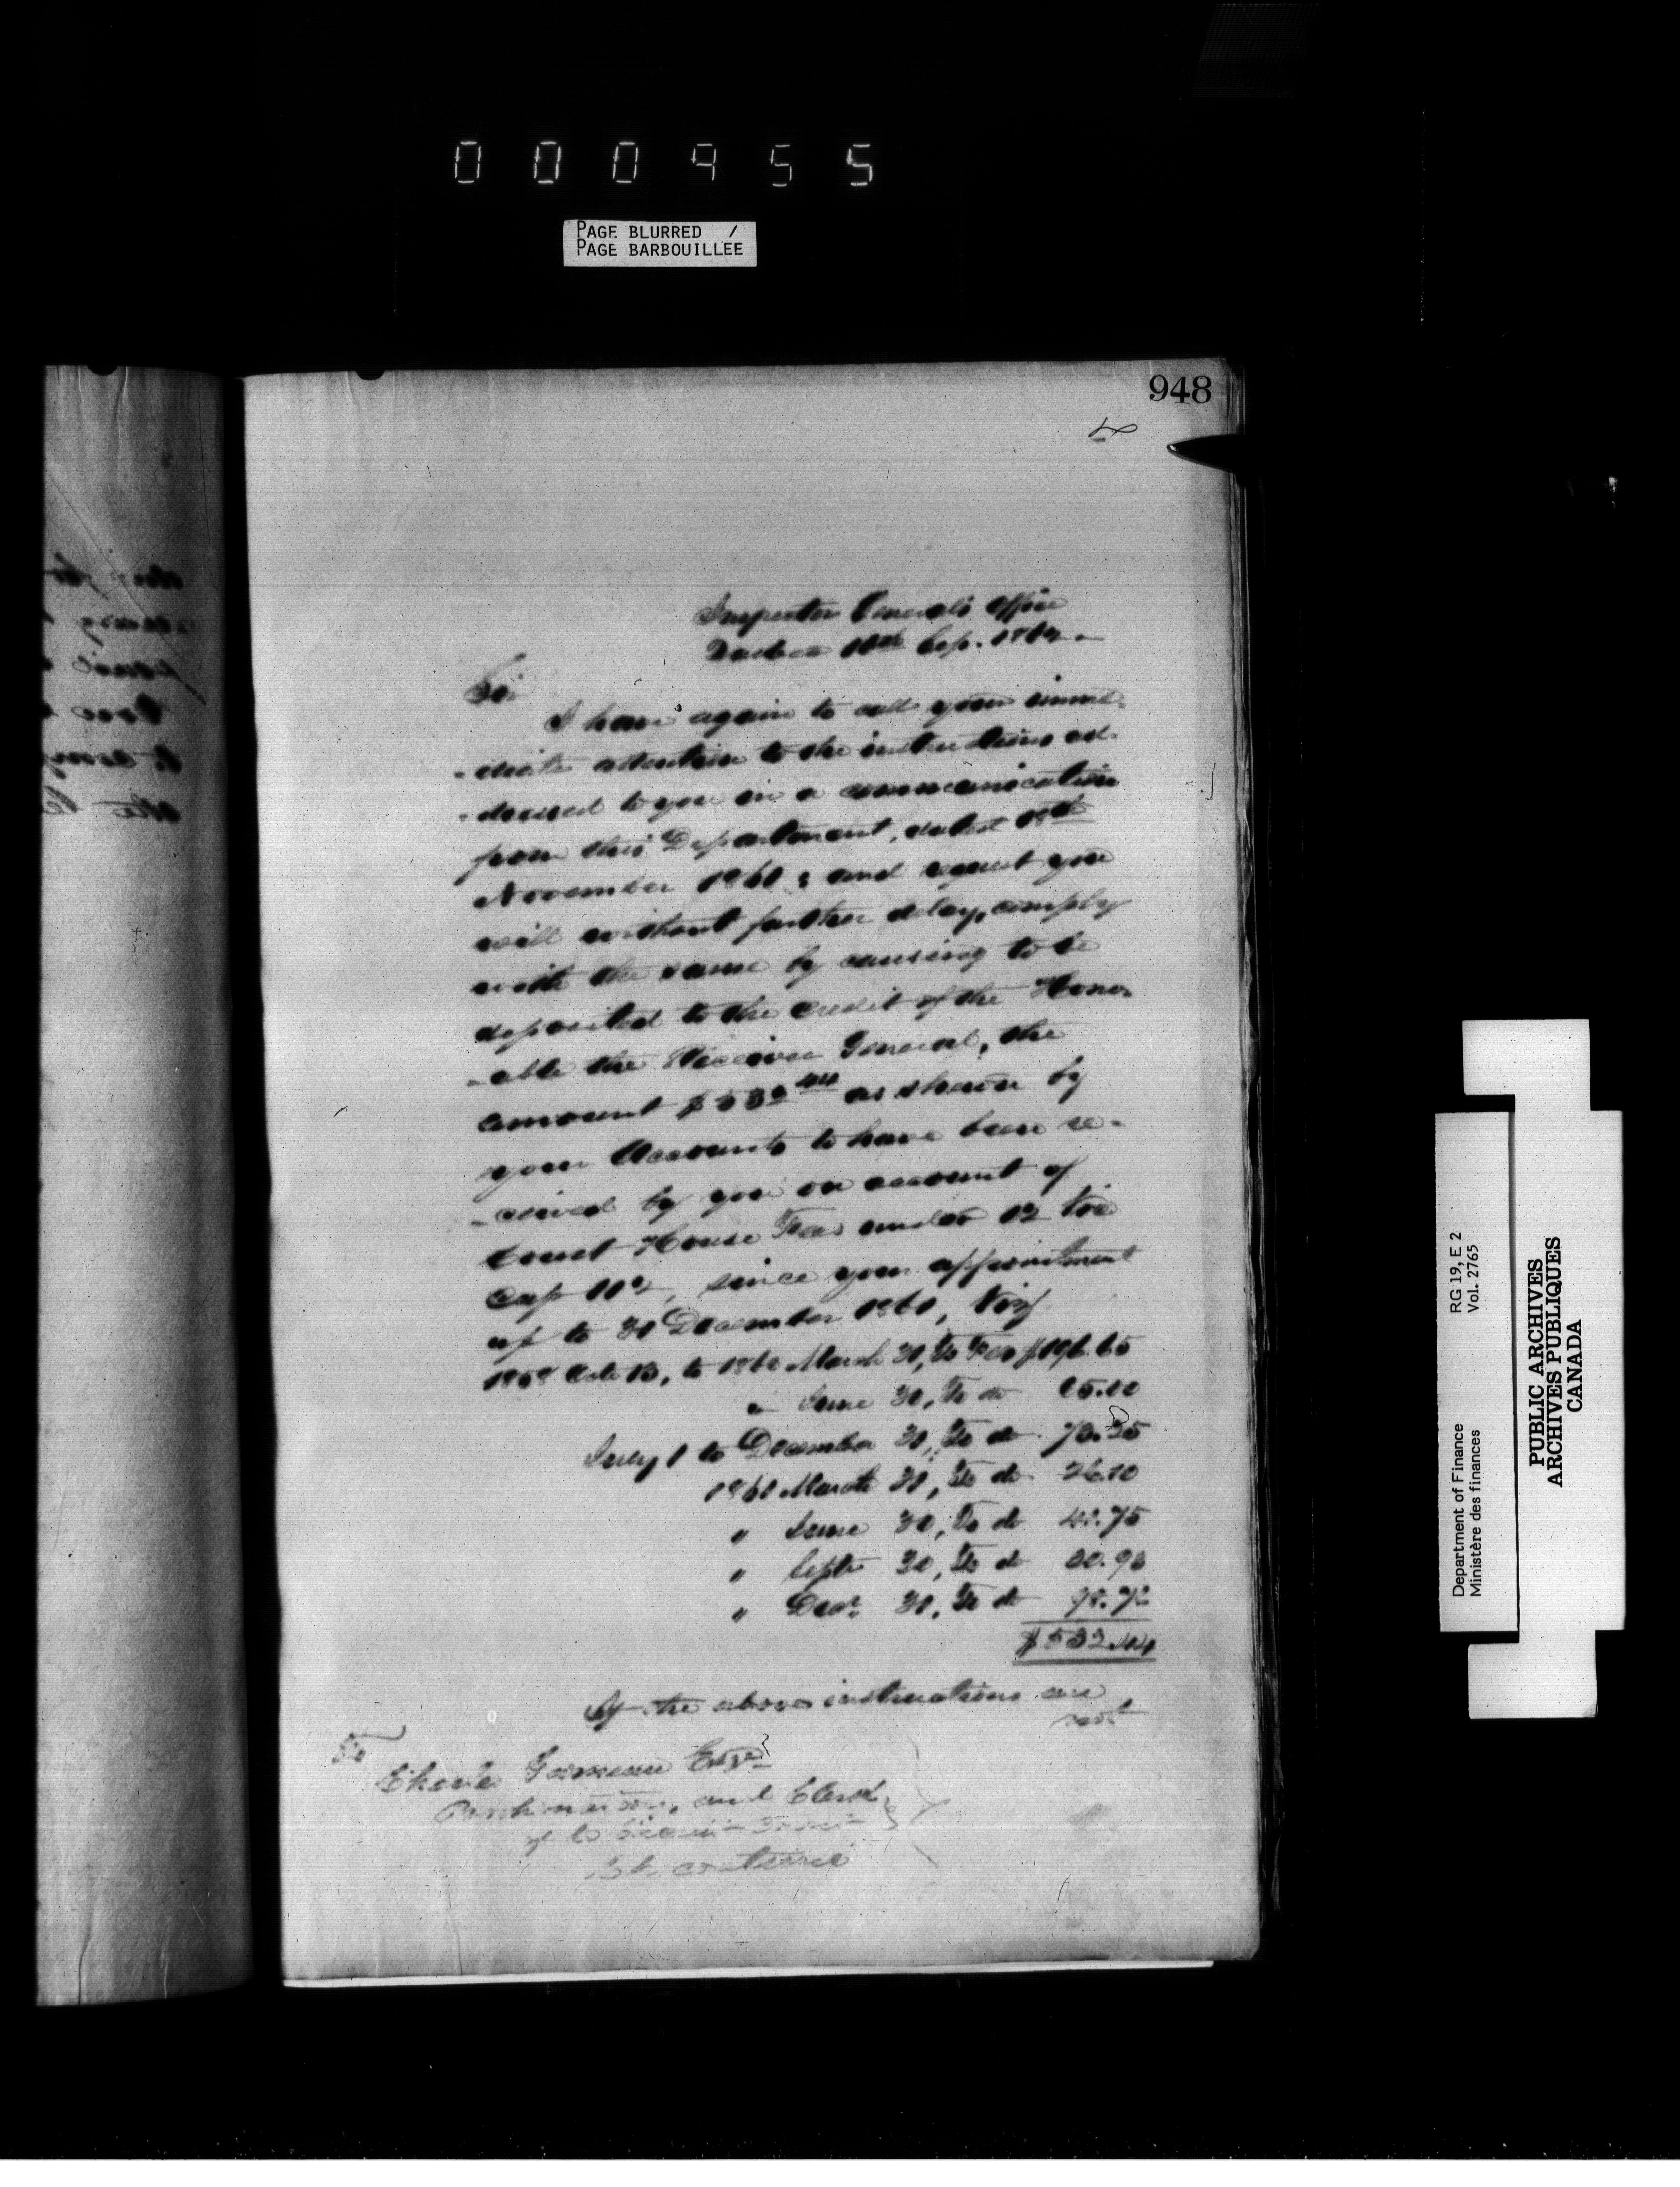 000955
PAGE BLURRED /
PAGE BARBOUILLÉE
948
Inspector General's Office
Quebec 11th Sep. 1862.
Sir
I have again to call your imme-
-diate attention to the instructions ad-
-dressed to you in a communication
from this Department, dated 18th
November 1861; and request you
will without further delay, comply
with the same by causing to be
deposited to the credit of the Honor-
-able the Receiver General, the
amount $532 44 as shewn by
your Accounts to have been re-
-ceived by you on account of
Court House Fees under 12 Vic
Cap 112, since your appointment
up to 31 December 1861, Viz
to 1860 March 31, To Fees $196.65
" June 30, To do
July 1 to December 31, To do
1861 March 31, To do 26.10
" June 30, To do 41.75
" Septr 30, To do
" Decr 31, To do
$532.44
If the above instructions are
not
To
Charles Esqr
and Clerk
of Circuit Court
Department of Finance RG 19, E 2
Ministère des finances Vol. 2765
PUBLIC ARCHIVES
ARCHIVES PUBLIQUES
CANADA